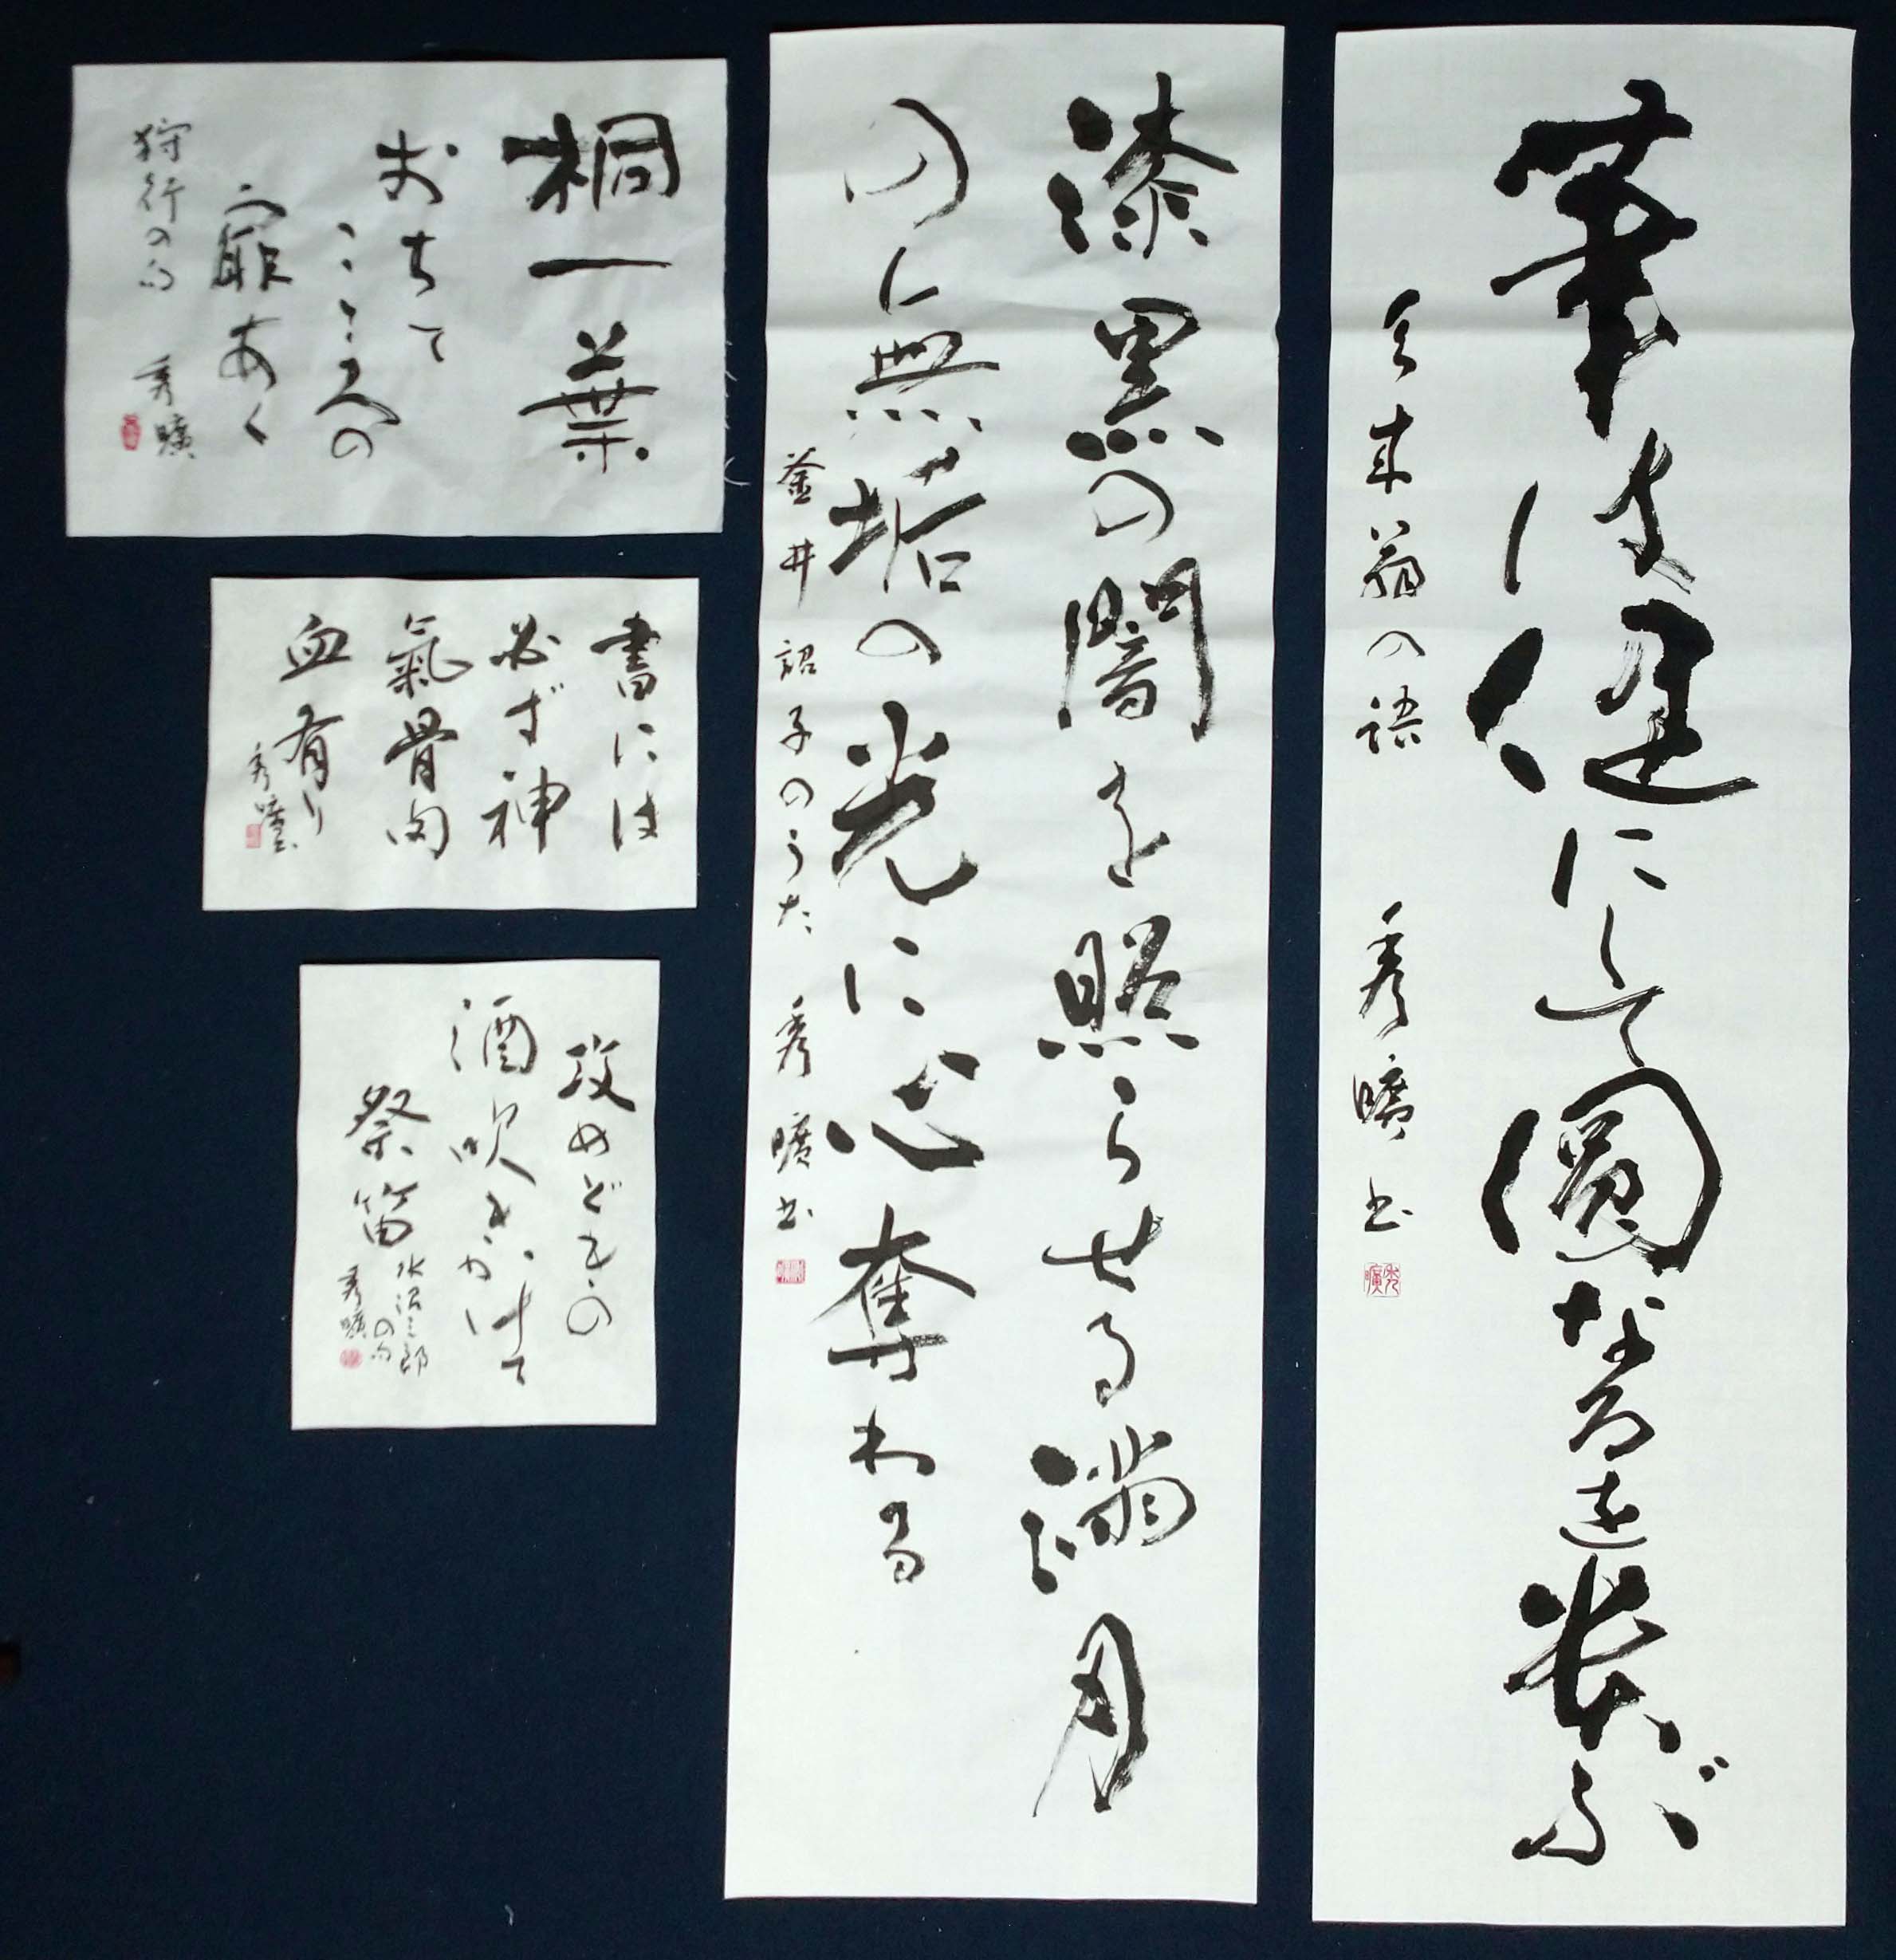 筆は健にして圓なるを貴ぶ
天来翁の語　秀曠書
漆黒の闇を照らせる満月
の無垢の光に心奪われる
釜井詔子のうた　秀曠書
桐一葉
おちて
こころの
扉あく
狩行の句　秀曠
書には
必ず神
氣骨肉
血有り
秀曠
攻めどきの
酒吹きかけて
祭笛
秀曠